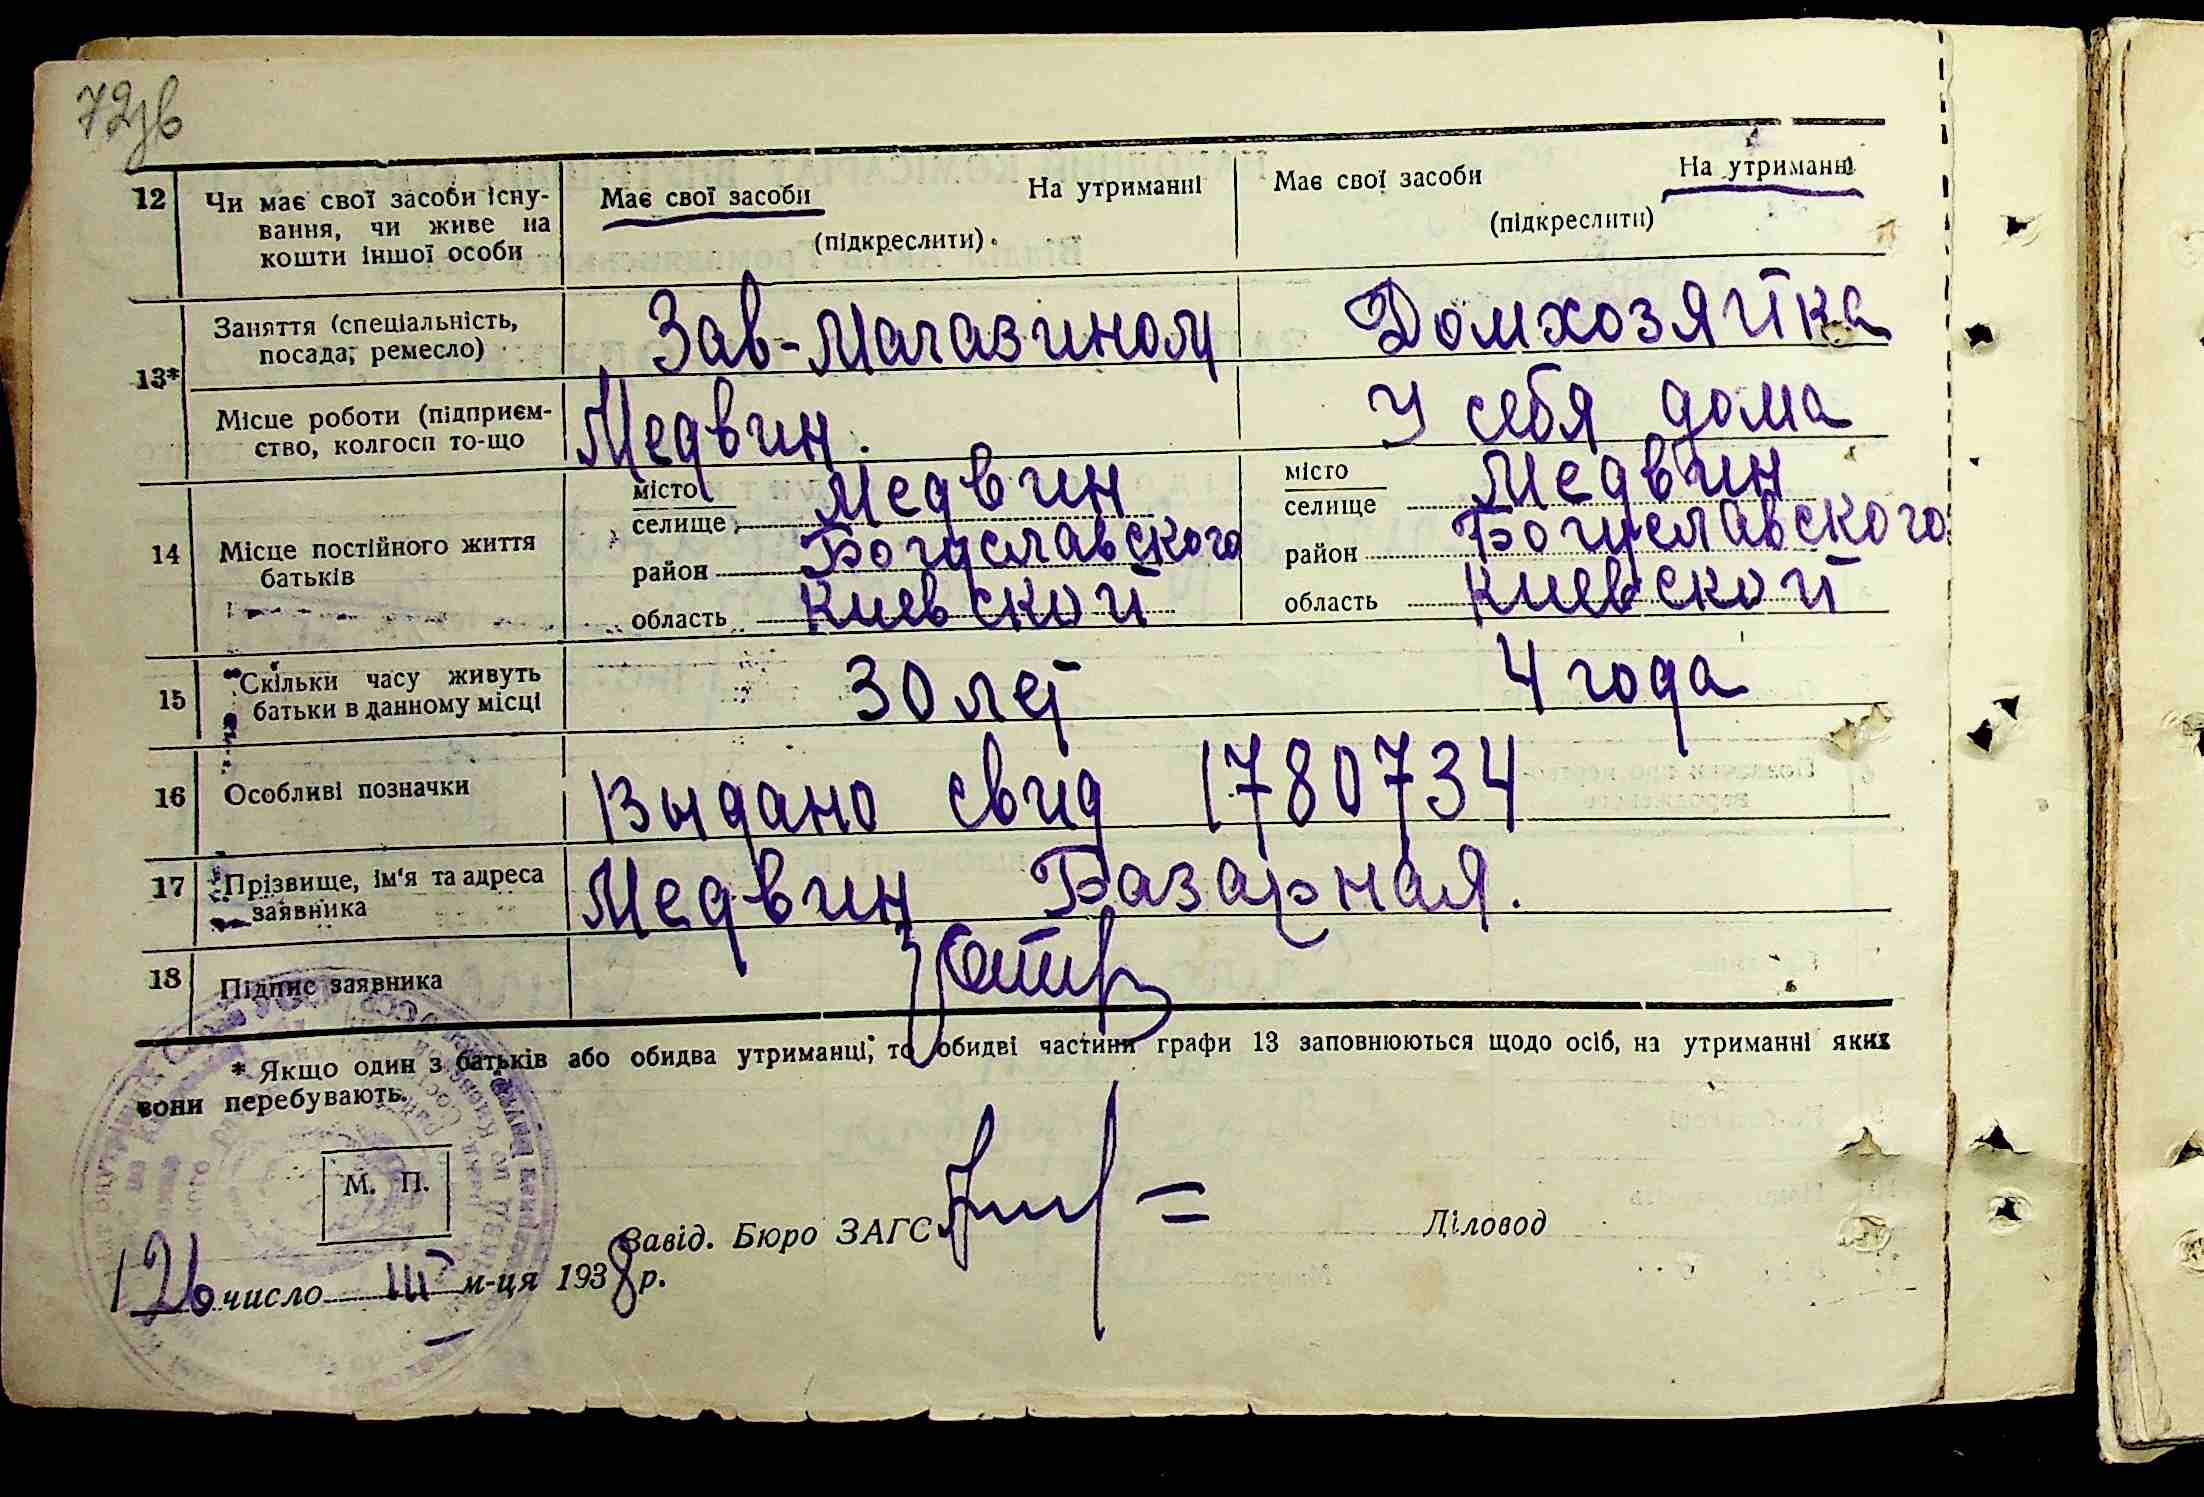 72зв
12 Чи має свої засоби існу- Має свої засоби На утриманні Має свої засоби На утриманні
вання, чи живе на (підкреслити) (підкреслити)
кошти іншої особи
13* Заняття (спеціальність, Зав-Магазином Домхозяйка
посада, ремесло)
Місце роботи (підприєм- Медвин. У себя дома
ство, колгосп то-що
14 Місце постійного життя місто Медвин місто Медвин
батьків селище селище
район Богуславского район Богуславского
область Киевской область Киевской
15 Скільки часу живуть 30 лет 4 года
батьки в данному місці
16 Особливі позначки Выдано свид 1780734
17 Прізвище, ім'я та адреса Медвин Базарная.
заявника
18 Підпис заявника
* Якщо один з батьків або обидва утриманці, то обидві частини графи 13 заповнюються щодо осіб, на утриманні яких
вони перебувають.
М. П.
Завід. Бюро ЗАГС Діловод
126 число III м-ця 1938 р.